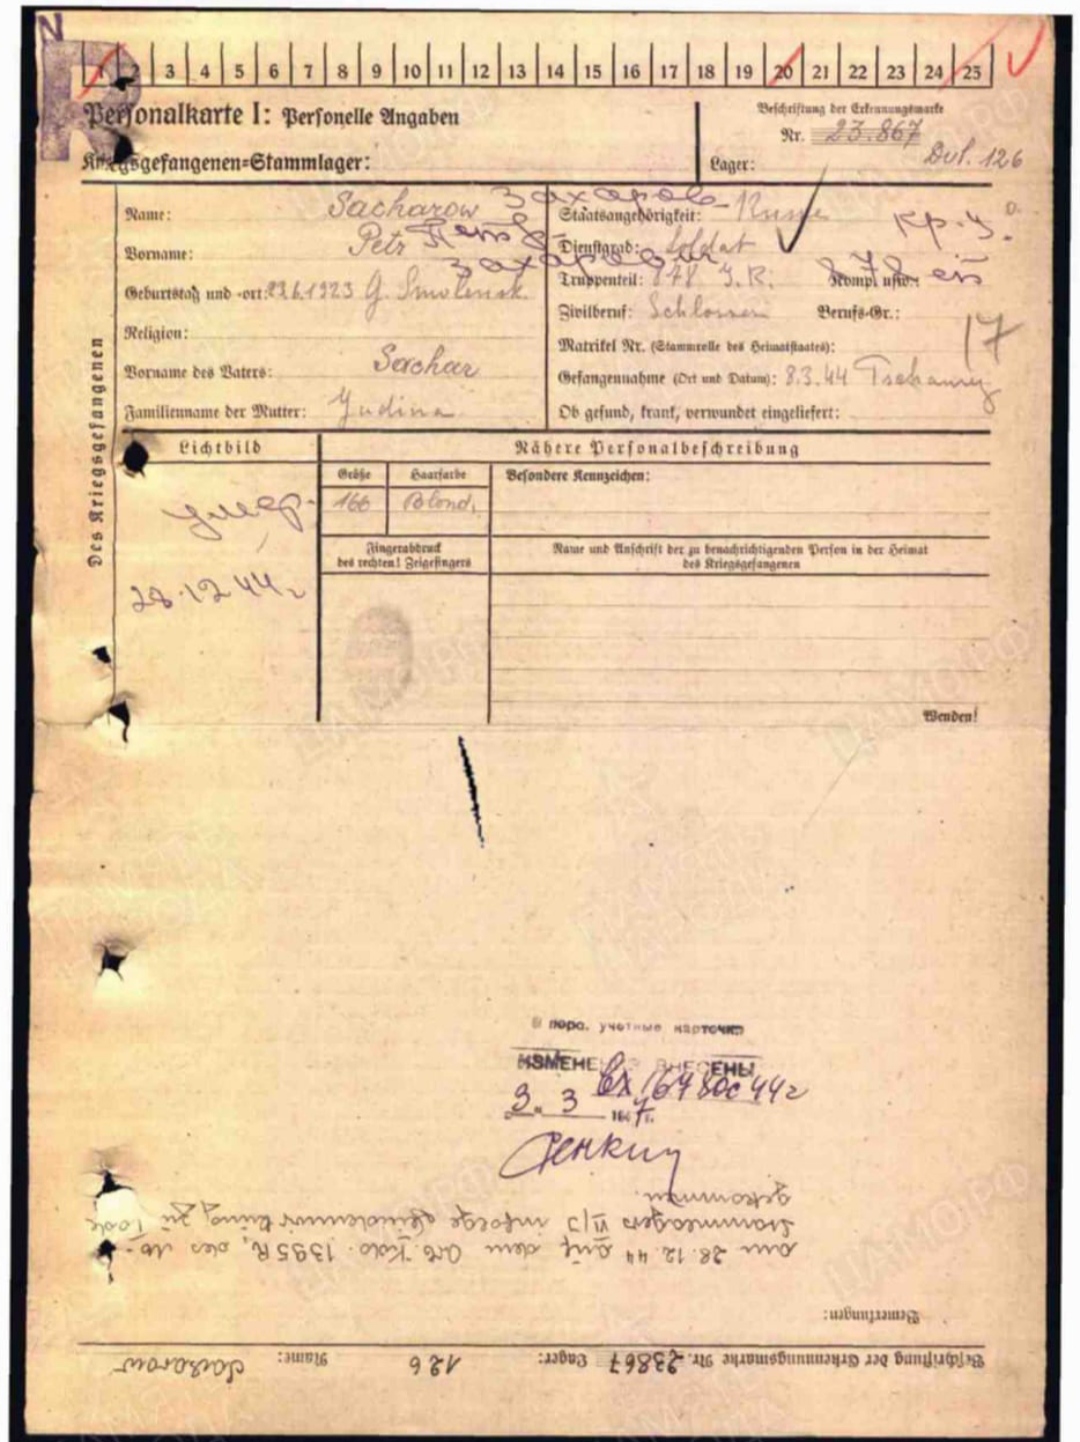 N
R
1 2 3 4 5 6 7 8 9 10 11 12 13 14 15 16 17 18 19 20 21 22 23 24 25
Personalkarte I: Personelle Angaben
Kriegsgefangenen=Stammlager:
Beschriftung der Erkennungsmarke
Nr. 23.867
Lager: Dul. 126
Des Kriegsgefangenen
Name: Sacharow Захаров
Vorname: Petr Петр
Захарович
Geburtstag und -ort: 29.6.1923 G. Smolensk.
Religion:
Vorname des Vaters: Sachar
Familienname der Mutter: Yudina
Staatsangehörigkeit: Russe
Dienstgrad: Soldat кр-ц
Truppenteil: 878 I.R. Komp. usw.: 878 сп
Zivilberuf: Schlosser Berufs-Gr.:
17
Matrikel Nr. (Stammrolle des Heimatstaates):
Gefangennahme (Ort und Datum): 8.3.44
Ob gesund, krank, verwundet eingeliefert:
Lichtbild
умер.
28.12.44г
Nähere Personalbeschreibung
Größe Haarfarbe Besondere Kennzeichen:
166 Blond.
Fingerabdruck
des rechten! Zeigefingers
Name und Anschrift der zu benachrichtigenden Person in der Heimat
des Kriegsgefangenen
Wenden!
учетные карточки
ИЗМЕНЕНИЯ ВНЕСЕНЫ
вх 16780с 44г
3. 3 1947г.
Beschriftung der Erkennungsmarke Nr. 23867 Lager: 126 Name: Sacharow
Bemerkungen:
am 28.12.44 auf dem Arb. Kdo. 1395 R, des
Stammlagers VI/J infolge Feindeinwirkung zu Tode
gekommen.